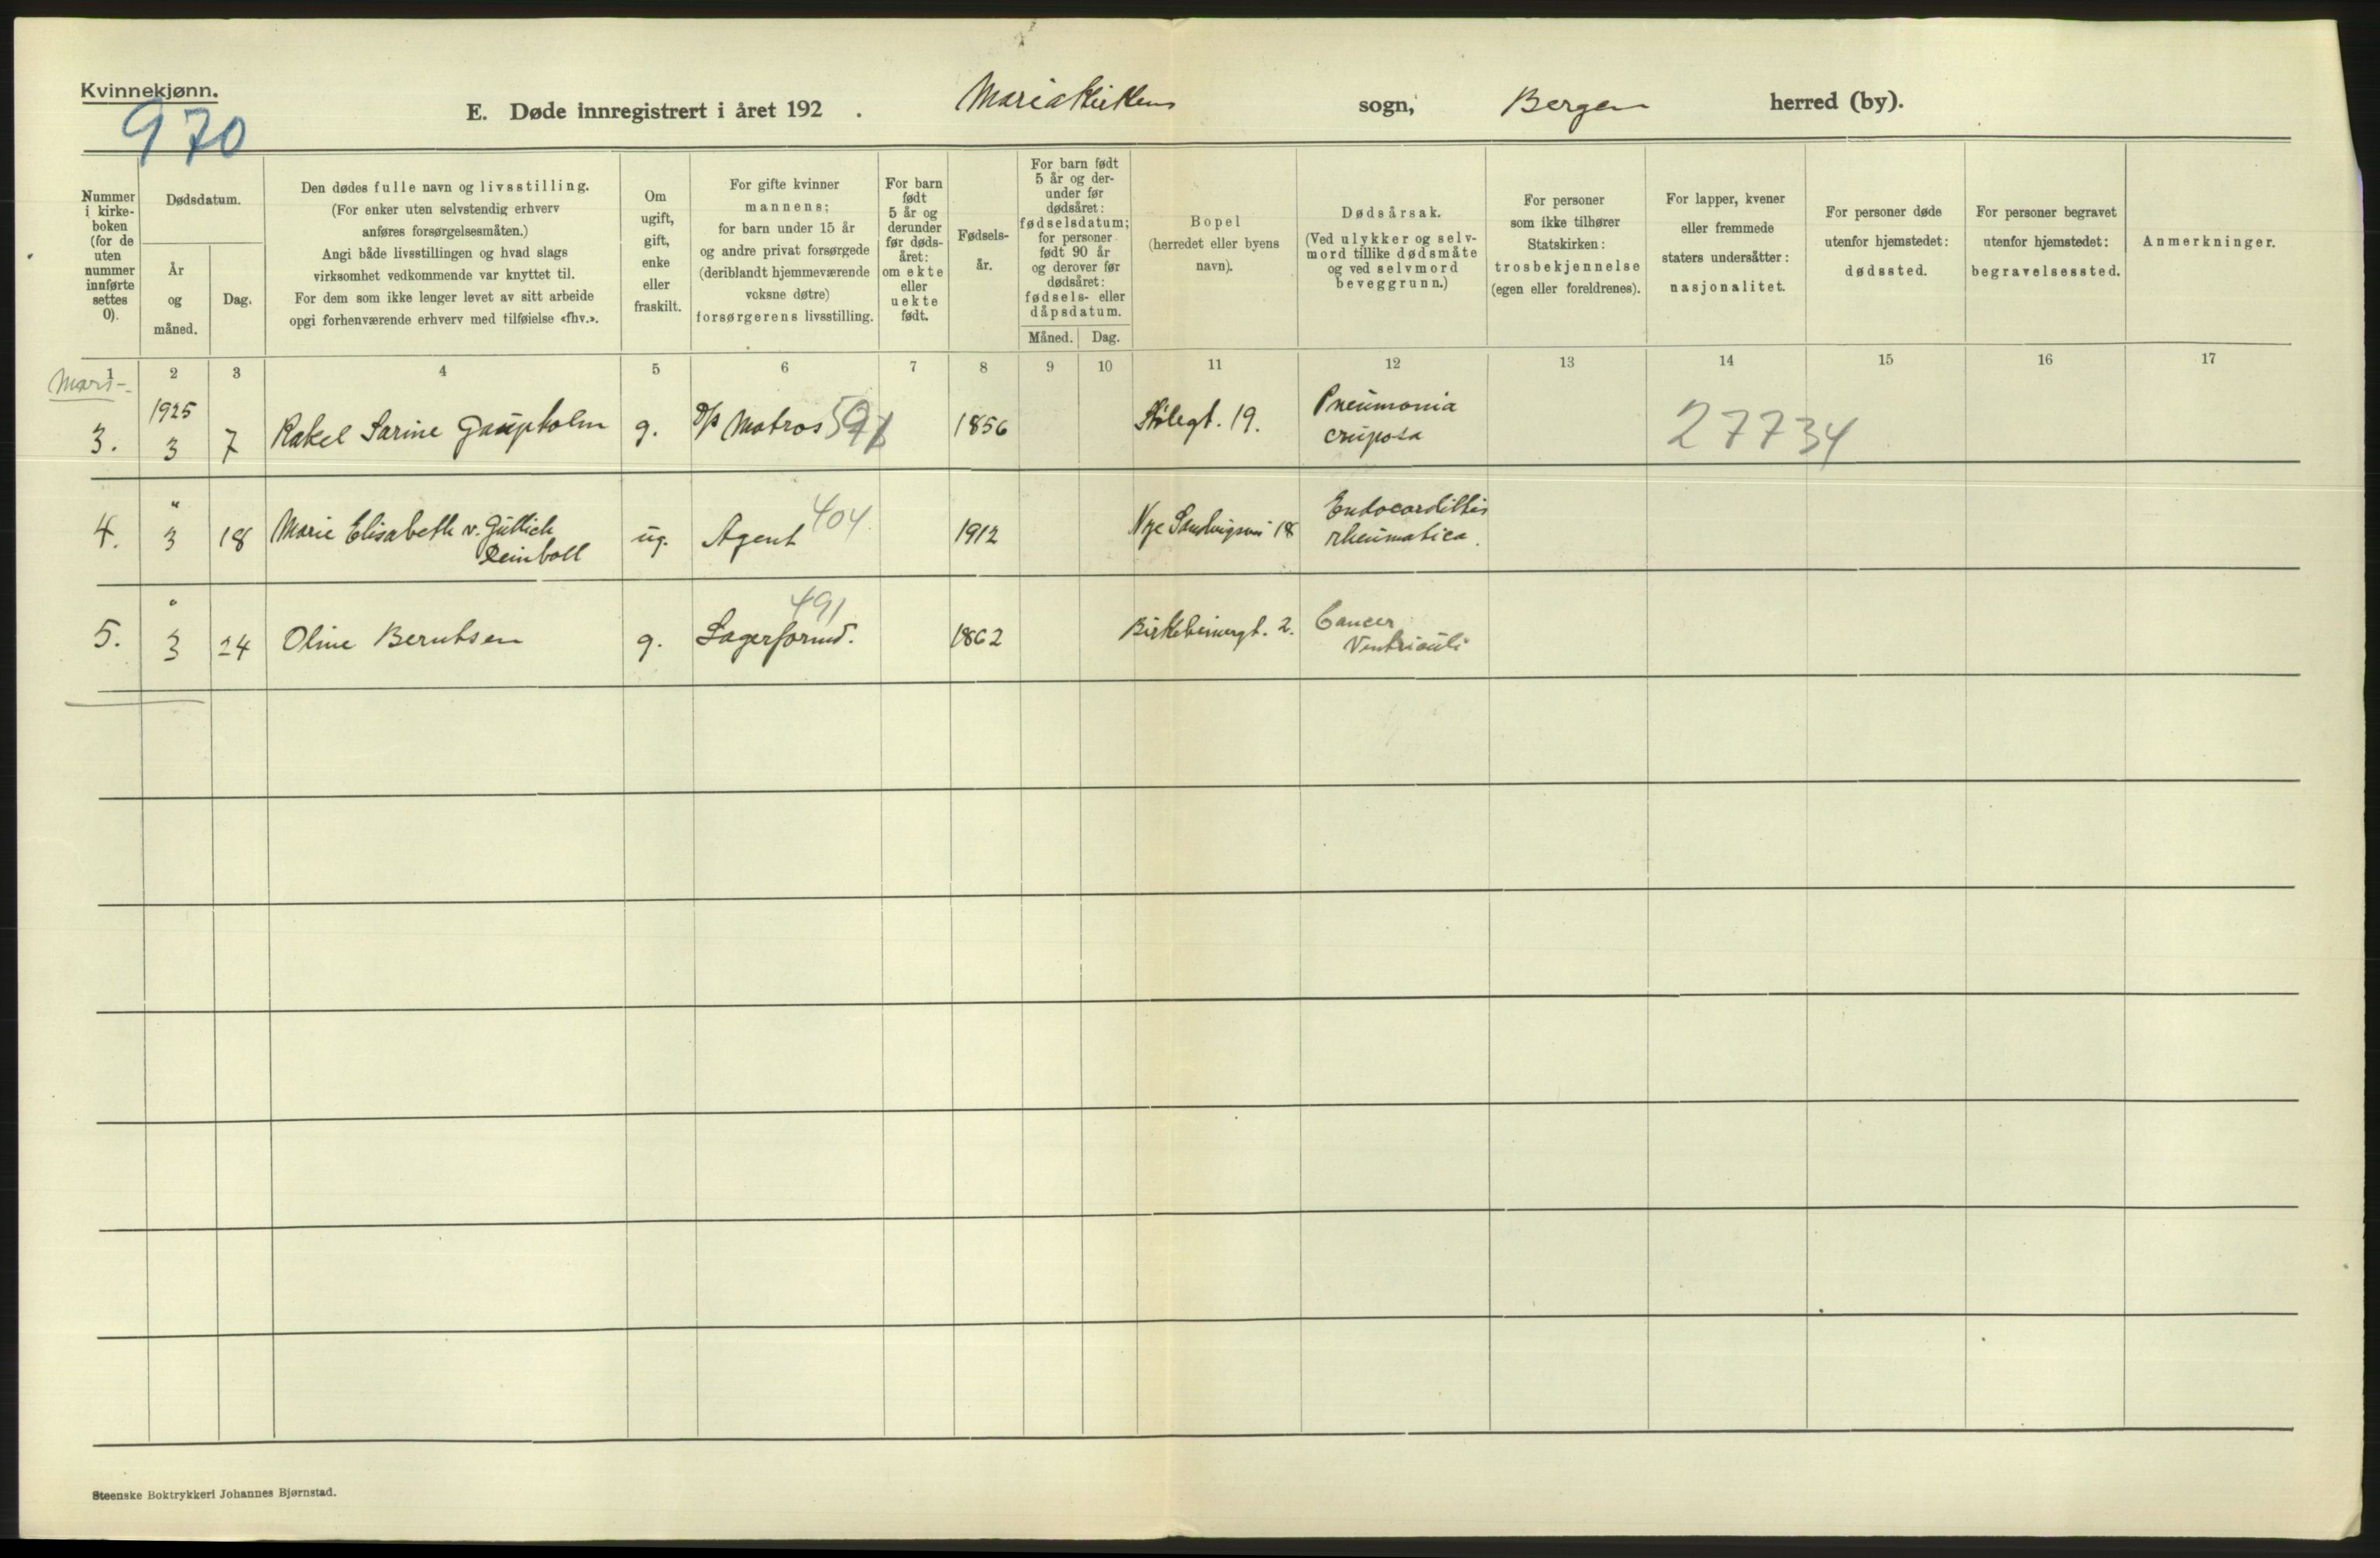 Kvinnekjønn.
970
E. Døde innregistrert i året 192 . Mariakirkens sogn, Bergen herred (by).
Nummer i kirke-boken (for de uten nummer innførte settes 0).
Dødsdatum.
År og måned.
Dag.
Den dødes fulle navn og livsstilling.
(For enker uten selvstendig erhverv
anføres forsørgelsesmåten.)
Angi både livsstillingen og hvad slags
virksomhet vedkommende var knyttet til.
For dem som ikke lenger levet av sitt arbeide
opgi forhenværende erhverv med tilføielse «fhv.».
Om ugift, gift, enke eller fraskilt.
For gifte kvinner
mannens;
for barn under 15 år
og andre privat forsørgede
(deriblandt hjemmeværende
voksne døtre)
forsørgerens livsstilling.
For barn født 5 år og derunder før døds-året: om ekte eller uekte født.
Fødsels-år.
For barn født 5 år og der-under før dødsåret: fødselsdatum; for personer født 90 år og derover før dødsåret: fødsels- eller dåpsdatum.
Måned. Dag.
Bopel
(herredet eller byens
navn).
Dødsårsak.
(Ved ulykker og selv-
mord tillike dødsmåte
og ved selvmord
beveggrunn.)
For personer
som ikke tilhører
Statskirken:
trosbekjennelse
(egen eller foreldrenes).
For lapper, kvener
eller fremmede
staters undersåtter:
nasjonalitet.
For personer døde
utenfor hjemstedet:
dødssted.
For personer begravet
utenfor hjemstedet:
begravelsessted.
Anmerkninger.
1 2 3 4 5 6 7 8 9 10 11 12 13 14 15 16 17
Mars
1925
3. 3 7 Rakel Sarine Gaupholm g. Matros 1856 19. Pneumonia
cruposa 27734
4. " 3 18 Marie Elisabeth v. Gütlich
Reinboll ug. Agent 404 1912 Nye Sandvigsvei 18 Endocardittis
rheumatica.
5. " 3 24 Oline Berntsen g. Lagerformd. 491 1862 Birkebeinergt. 2. Cancer
Ventriculi
Steenske Boktrykkeri Johannes Bjørnstad.